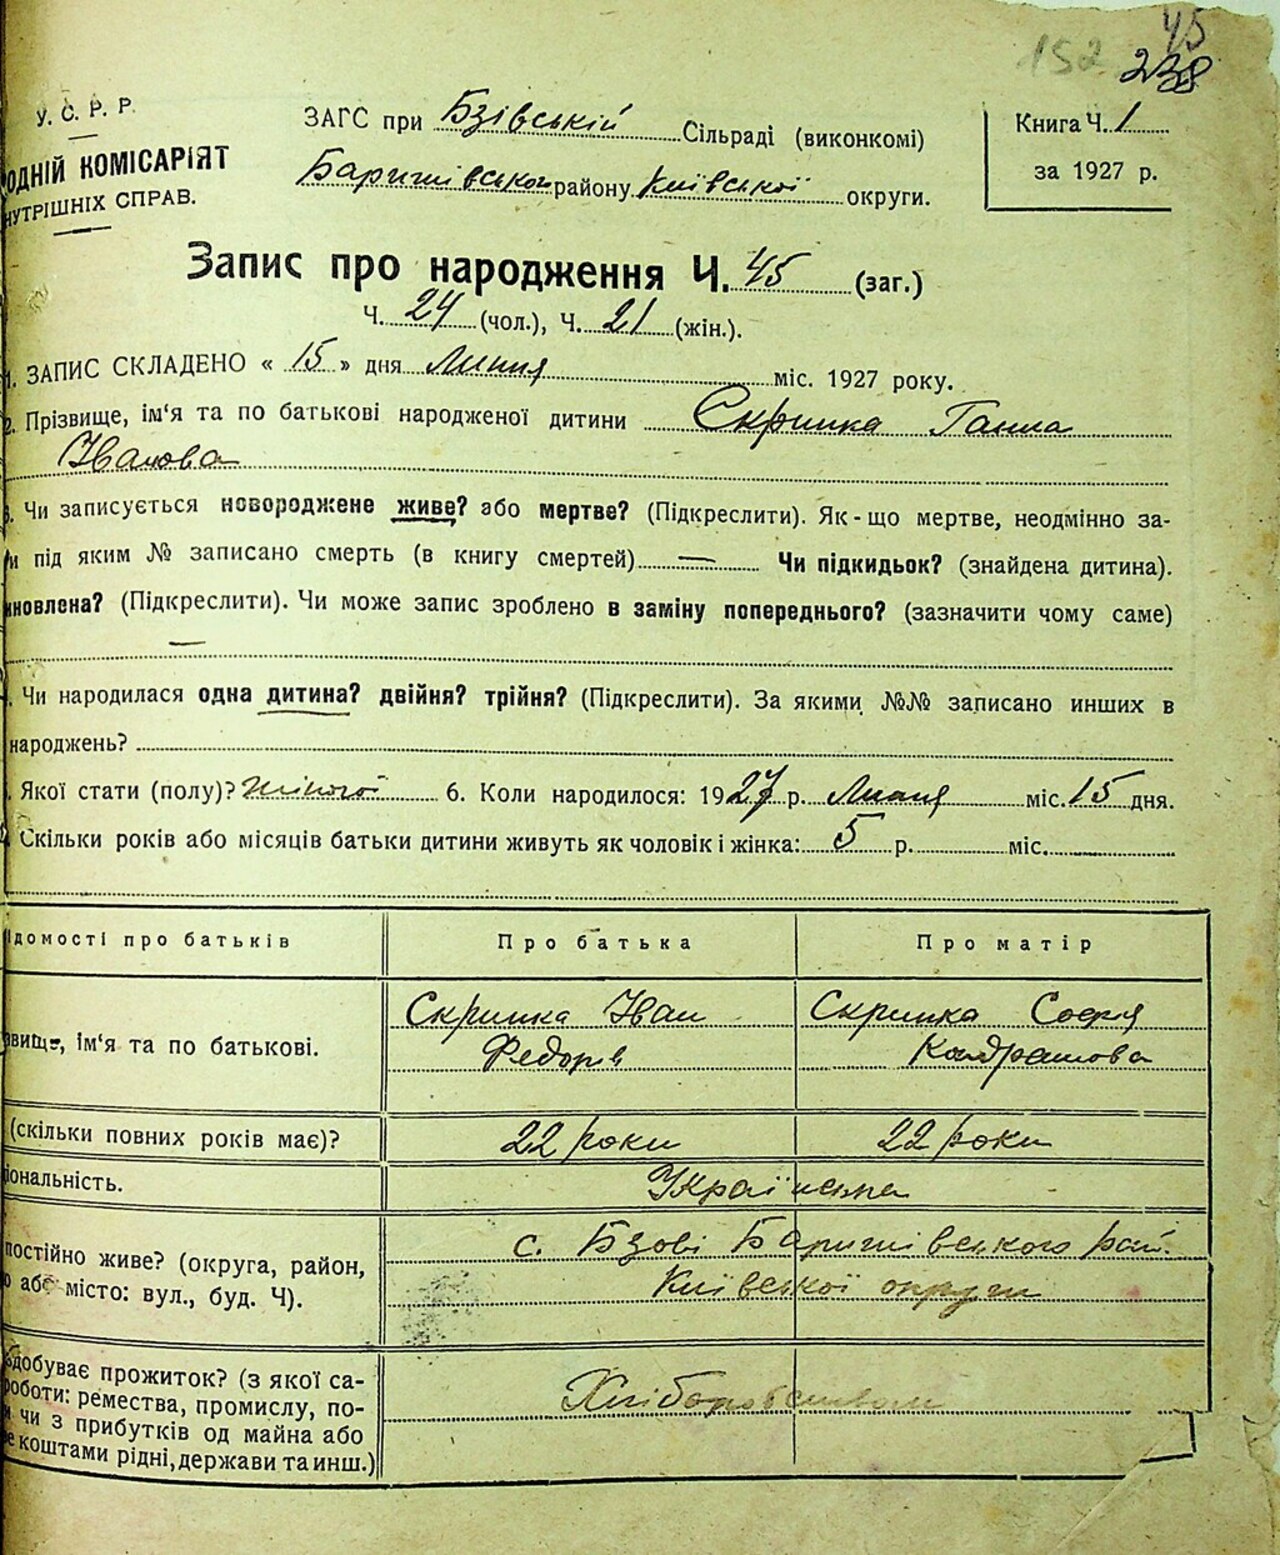 45
152
238
У. С. Р. Р.
ОДНІЙ КОМІСАРІЯТ
НУТРІШНІХ СПРАВ.
ЗАГС при Бзівській Сільраді (виконкомі)
Баришівської району Київської округи.
Книга Ч. 1
за 1927 р.
Запис про народження Ч. 45 (заг.)
Ч. 24 (чол.), Ч. 21 (жін.).
1. ЗАПИС СКЛАДЕНО « 15 » дня Липня міс. 1927 року.
2. Прізвище, ім‘я та по батькові народженої дитини Скрипка Ганна
Іванова
3. Чи записується новороджене живе? або мертве? (Підкреслити). Як-що мертве, неодмінно за-
и під яким № записано смерть (в книгу смертей) — Чи підкидьок? (знайдена дитина).
новлена? (Підкреслити). Чи може запис зроблено в заміну попереднього? (зазначити чому саме)
—
Чи народилася одна дитина? двійня? трійня? (Підкреслити). За якими №№ записано инших в
народжень?
Якої стати (полу)? жіночої 6. Коли народилося: 1927 р. Липня міс. 15 дня.
Скільки років або місяців батьки дитини живуть як чоловік і жінка: 5 р. міс.
ідомості про батьків Про батька Про матір
звище, ім‘я та по батькові. Скрипка Іван Скрипка Софія
Федорів Кондратова
(скільки повних років має)? 22 роки 22 роки
іональність. Українська
постійно живе? (округа, район, с. Бзові Баришівського рай.
о або місто: вул., буд. Ч). Київської округи
здобуває прожиток? (з якої са-
роботи: ремества, промислу, по- Хліборобством
и чи з прибутків од майна або
е коштами рідні, держави та инш.)